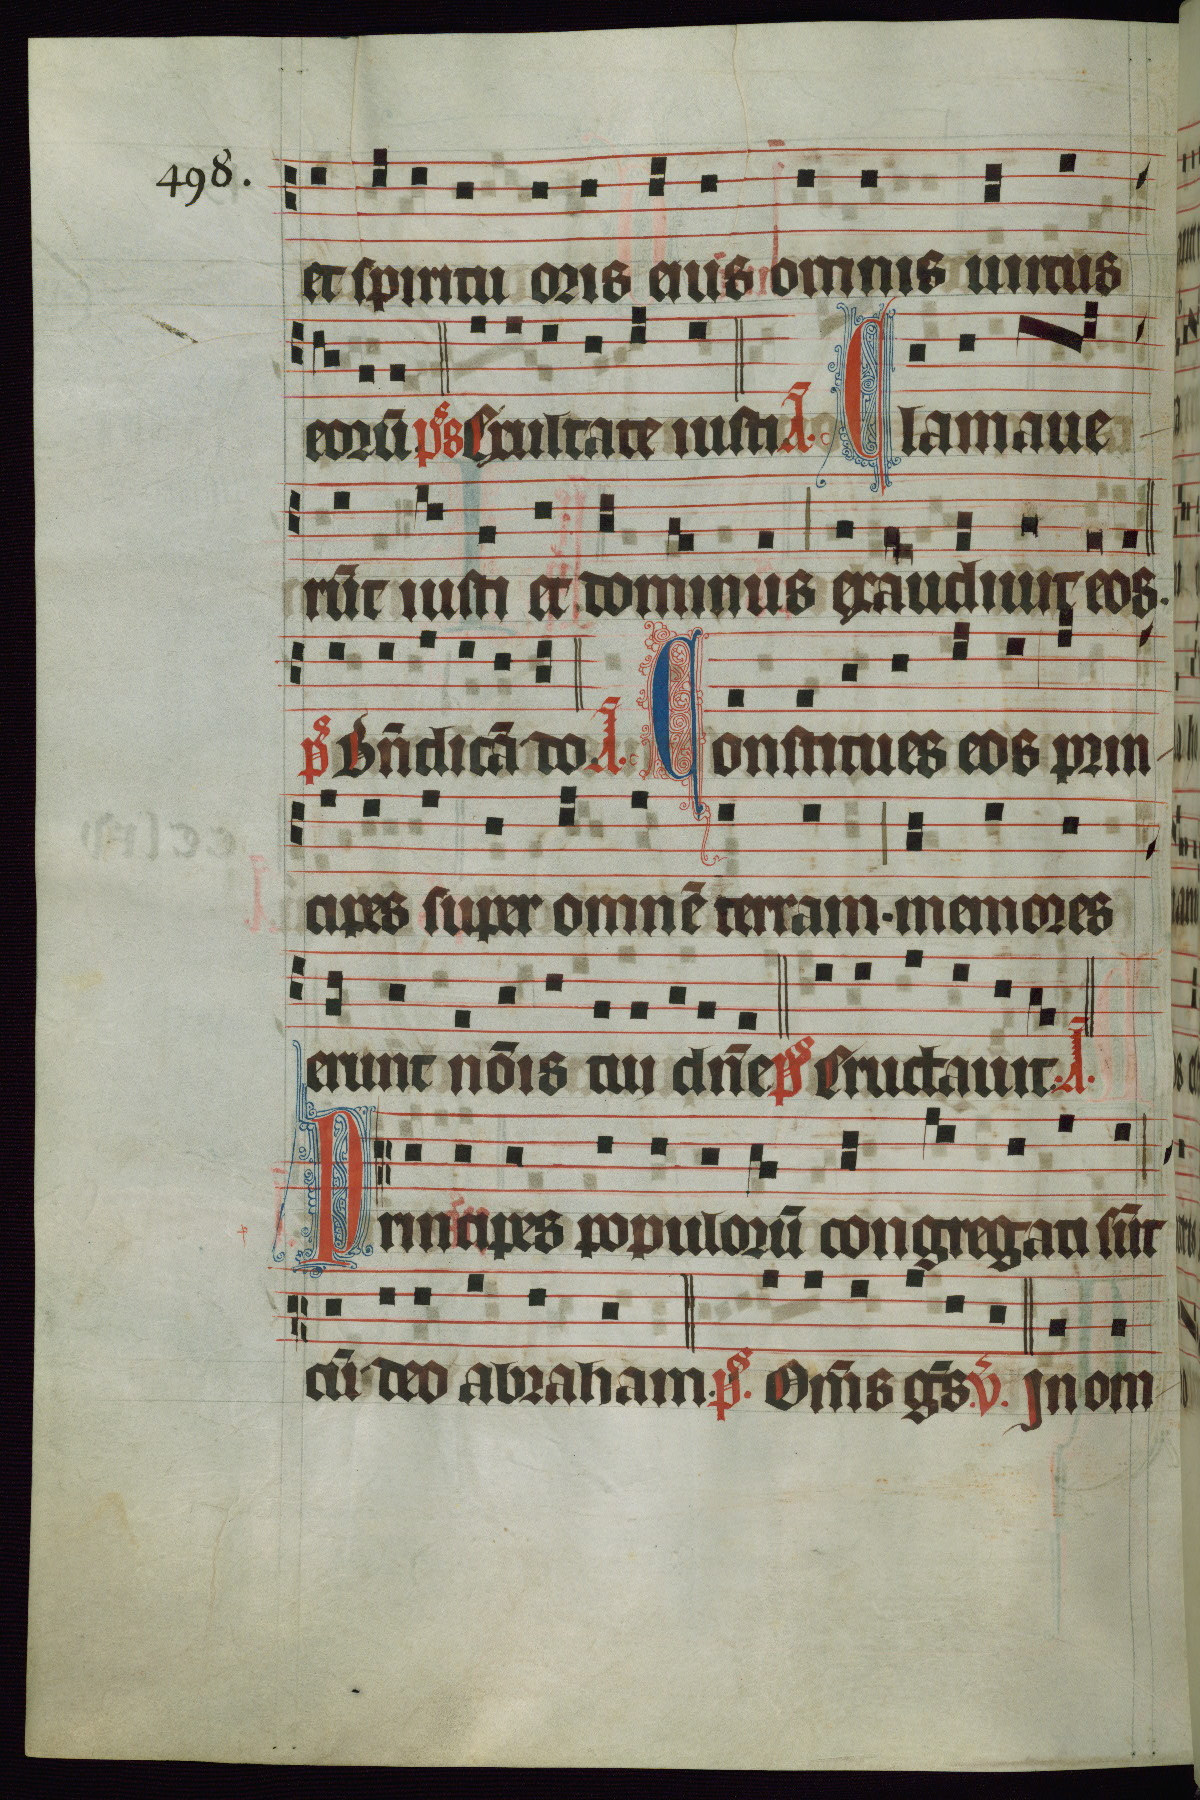 498.
et spiritu oris eius omnis uirtus
eorū p̄s Exultate iusti Ā. Clamaue
rūt iusti et dominus exaudiuit eos.
p̄s Bn̄dicā do. Ā. Constitues eos prin
cipes super omnē terram. memores
erunt nōis tui dn̄e p̄s Eructauit. Ā.
Principes populorū congregati sūt
cū deo abraham. p̄s. Om̄s gēs. v̄. In om